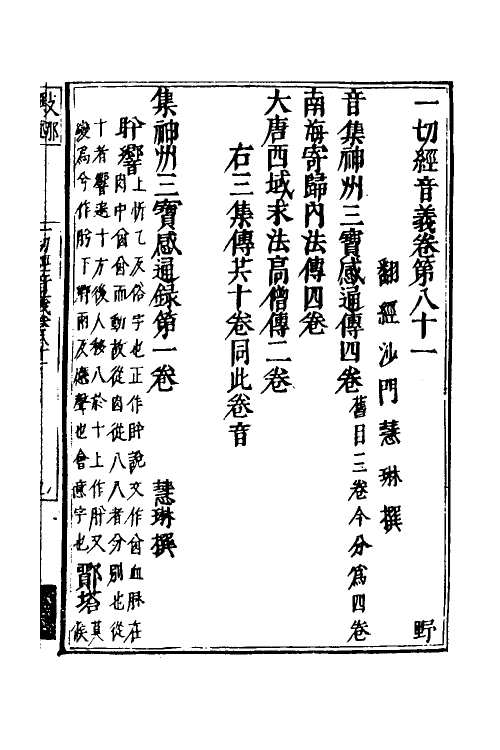 一切經音義卷第八十一 野
翻經沙門慧琳撰
音集神州三寶感通傳四卷 舊曰三卷今分爲四卷
南海寄歸內法傳四卷
大唐西域求法高僧傳二卷
右三集傳共十卷同此卷音
集神州三寶感通録第一卷 慧琳撰
肸響 上忻乞反俗字也正作肸說文作㕣血脉在
肉中㕣㕣而動故從肉從八八者分別也從
十者響遠十方後人移八於十上作肸又
變爲兮作肹下 兩反應聲也會意字也 鄮塔 侯
一切經音義卷八十一